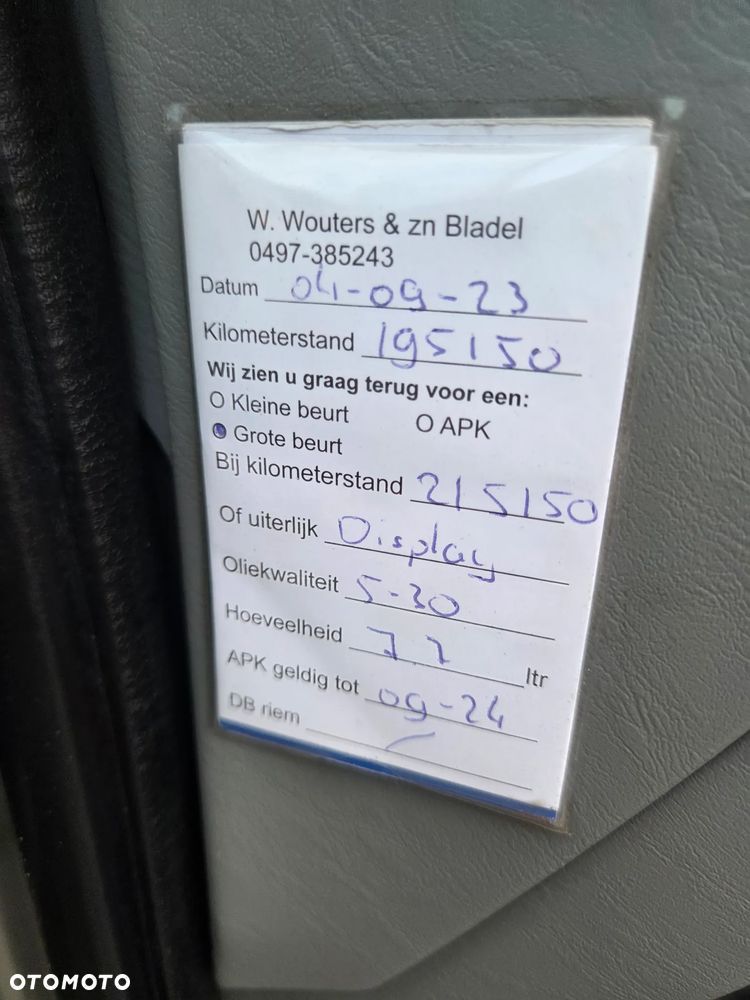 W. Wouters & zn Bladel
0497-385243
Datum 04-09-23
Kilometerstand 195150
Wij zien u graag terug voor een:
O Kleine beurt O APK
O Grote beurt
Bij kilometerstand 215150
Of uiterlijk Display
Oliekwaliteit 5-30
Hoeveelheid 7.7 ltr
APK geldig tot 09-24
DB riem —
OTOMOTO